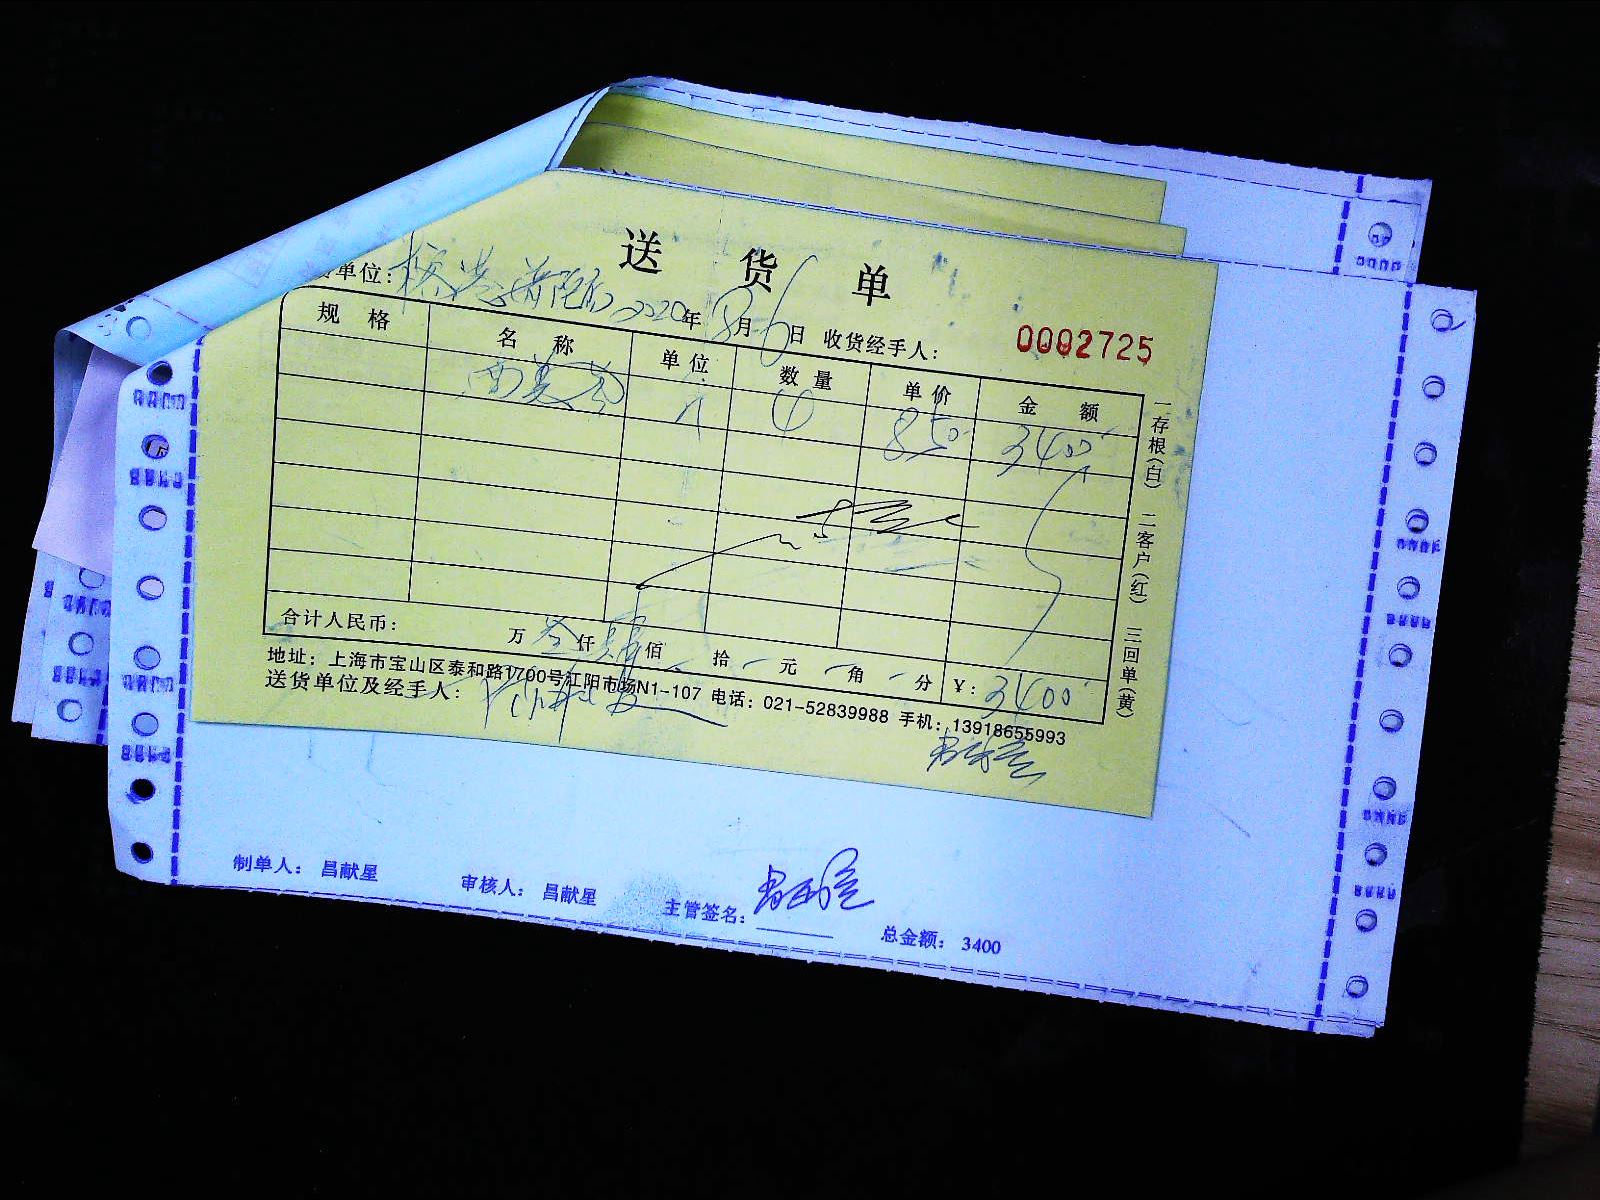 送货单
单位: 2020年8月6日 收货经手人: 0002725
规格 名称 单位 数量 单价 金额
个 4 850 3400
合计人民币: 万叁仟肆佰 拾 元 角 分 ¥: 3400
地址: 上海市宝山区泰和路1700号江阳市场N1-107 电话: 021-52839988 手机: 13918655993
送货单位及经手人:
一存根(白) 二客户(红) 三回单(黄)
制单人: 昌献星 审核人: 昌献星 主管签名: 总金额: 3400